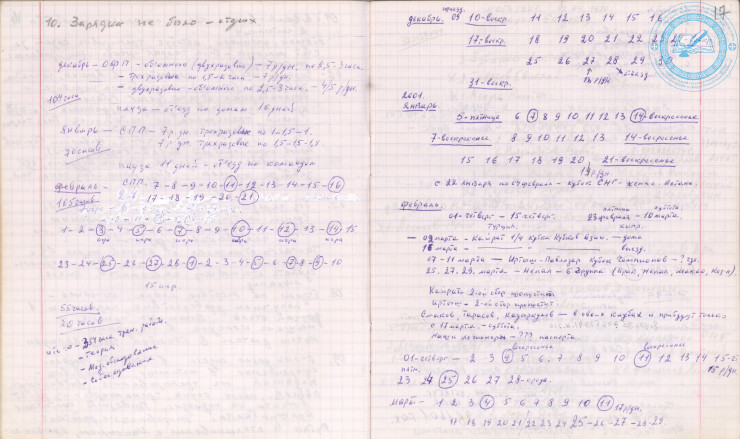 10. Зарядки не было – отдых
декабрь – ОФП – объёмного (двухразовые) – 7 р/дн. по 2,5-3 часа.
– трехразовые по 1,5-2 часа – 7 р/дн.
– двухразовые – объёмного по 2,5-3 часа. – 4/5 р/дн.
104 часа
пауза – отъезд по домам 10 дней
январь – СПП – 7 р.дн. трехразовые по 1-1,5-1.
7 р.дн. трехразовые по 1,5-1,5-1,5
70 часов
пауза 11 дней – отъезд по командам
февраль – СПП. 7-8-9-10-11-12-13-14-15-16
105 часов
17-18-19-20-21
1-2-3-4-5-6-7-8-9-10-11-12-13-14-15
игра игра игра игра игра
23-24-25-26-27-28-1-2-3-4-5-6-7-8-9-10
15 игр
55 часов.
20 часов
354 часа трен. работы.
– Теория
– Мед. обследование
– Собеседования
17
декабрь. 09 10-воскр. 11 12 13 14 15 16
17-воскр. 18 19 20 21 22 23
25 26 27 28 29 30
31-воскр.
2001.
январь.
5-пятница 6 7 8 9 10 11 12 13 14-воскресенье
7-воскресенье 8 9 10 11 12 13 14-воскресенье
15 16 17 18 19 20 21-воскресенье
с 22 января по 5 февраля – кубок СНГ –
февраль.
пятница суббота.
01-четверг – 15-четверг. 23 февраля – 10 марта.
Турция. кипр.
– 09 марта – Кайрат 1/4 Кубка Кубков Азии. – дома
16 марта – выезд.
07-11 марта – Иртыш-Павлодар Кубок Чемпионов – ? где.
25, 27, 29, марта – Непал – 6 группа (Ирак, Непал, Макао, Каз-н).
Иртыш – 2-ой сбор пропустит.
с 17 марта. – суббота.
– ??? паспорта.
воскресенье воскресенье
01-четверг – 2 3 4 5 6 7 8 9 10 11 12 13 14 15
15 р/дн.
пятн.
23 24 25 26 27 28-среда.
Март – 1 2 3 4 5 6 7 8 9 10 11 17 р/дн.
11 18 19 20 21 22 23 24 25-26-27-28-29.